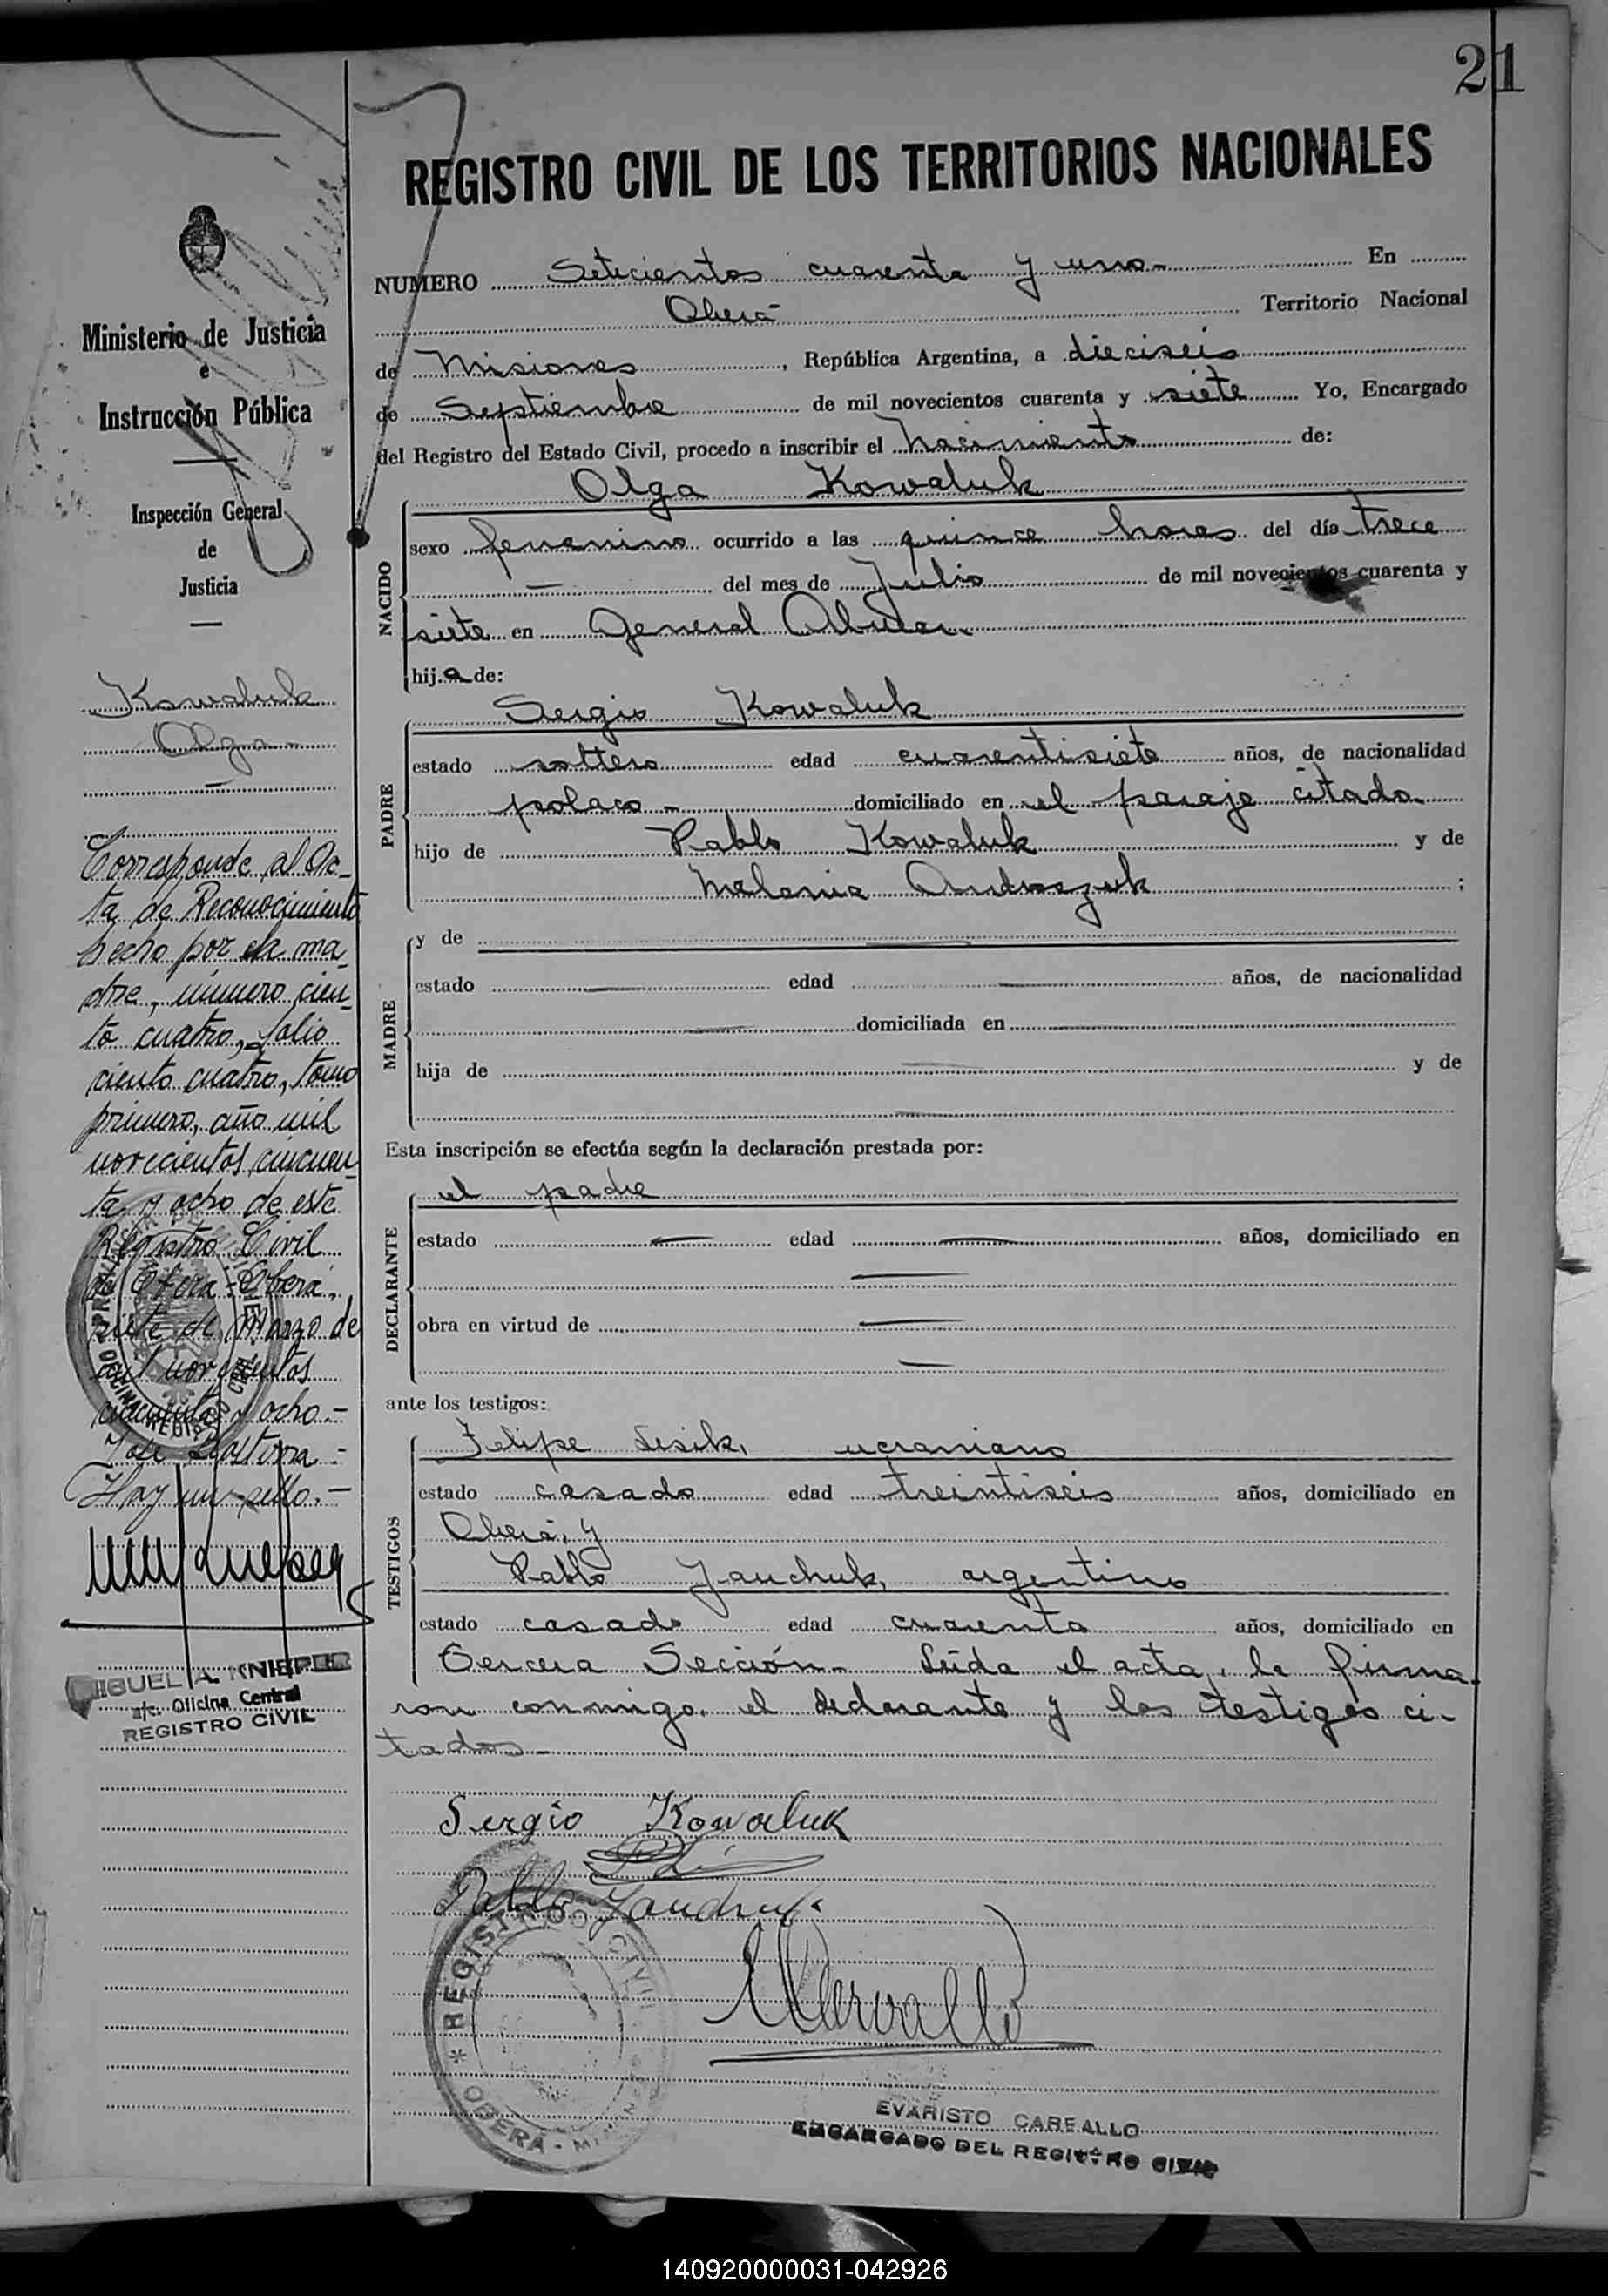 21
REGISTRO CIVIL DE LOS TERRITORIOS NACIONALES
Ministerio de Justicia
e
Instrucción Pública
Inspección General
de
Justicia
Kowaluk
Olga
Corresponde al Ac-
ta de Reconocimiento
hecho por la ma-
dre, número cien-
to cuatro, folio
ciento cuatro, tomo
primero, año mil
novecientos cincuen-
ta y ocho de este
Registro Civil
de Oberá.- Oberá,
siete de Marzo de
mil novecientos
cincuenta y ocho.-
Hay un sello.-
MIGUEL A. KNIEPER
a/c. Oficina Central
REGISTRO CIVIL
NUMERO Setecientos cuarenta y uno- En
Oberá Territorio Nacional
de Misiones, República Argentina, a dieciseis
de Septiembre de mil novecientos cuarenta y siete Yo, Encargado
del Registro del Estado Civil, procedo a inscribir el nacimiento de:
NACIDO
Olga Kowaluk
sexo femenino ocurrido a las quince horas del día trece
— del mes de Julio de mil novecientos cuarenta y
siete en General Alvear
hija de:
PADRE
Sergio Kowaluk
estado soltero edad cuarentisiete años, de nacionalidad
polaco - domiciliado en el paraje citado
hijo de Pablo Kowaluk y de
Melania Andrszuk ;
MADRE
y de —
estado — edad — años, de nacionalidad
— domiciliada en
hija de — y de
—
Esta inscripción se efectúa según la declaración prestada por:
DECLARANTE
el padre
estado — edad — años, domiciliado en
—
obra en virtud de —
—
ante los testigos:
TESTIGOS
Felipe Sesik, ucraniano
estado casado edad treintiseis años, domiciliado en
Oberá, y
Pablo Yauchuk, argentino
estado casado edad cuarenta años, domiciliado en
Tercera Sección- Leída el acta, la firma-
ron conmigo, el declarante y los testigos ci-
tados-
Sergio Kowaluk
Pablo
REGISTRO CIVIL
OBERA - MI
EVARISTO CARBALLO
ENCARGADO DEL REGISTRO CIVIL
140920000031-042926